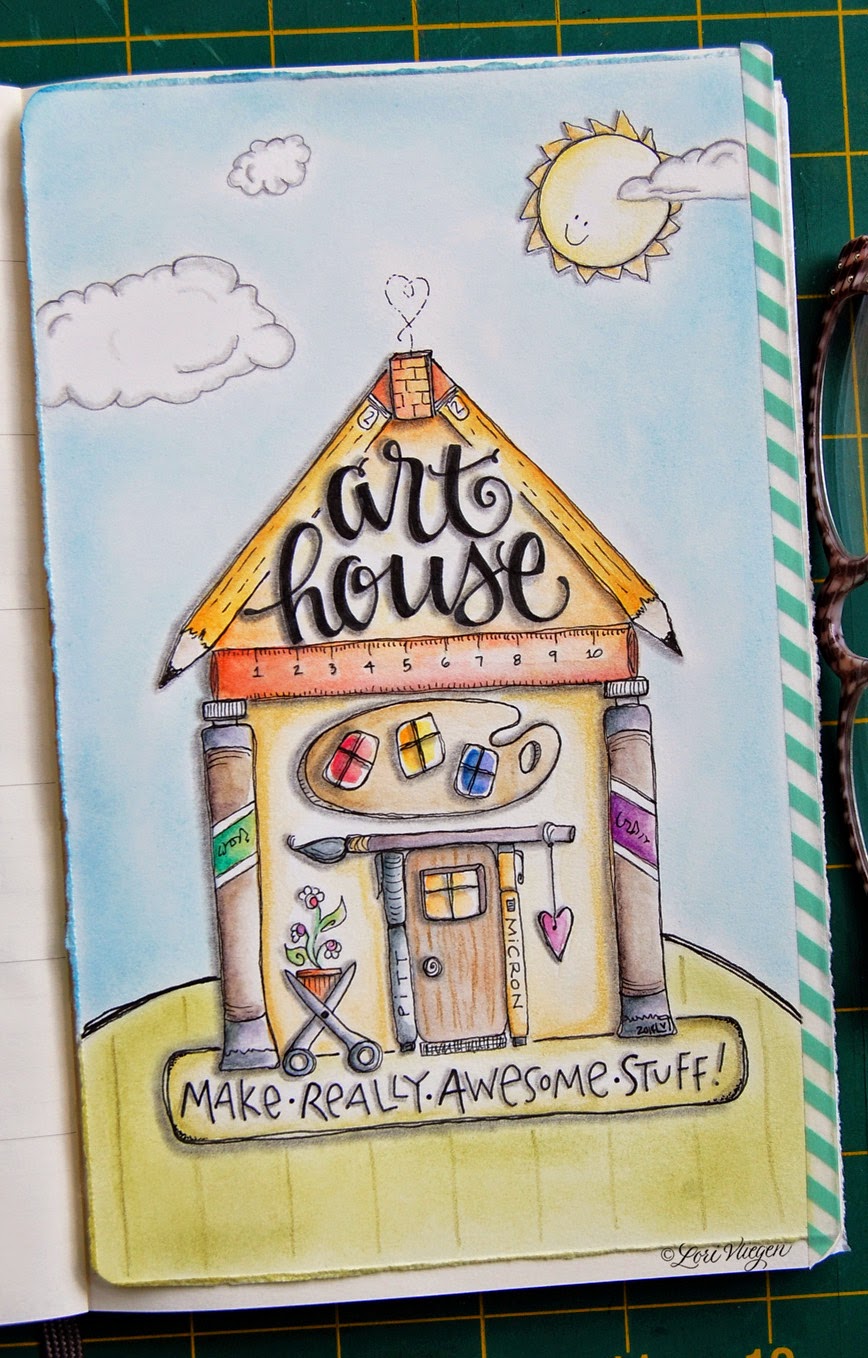 2
2
art
house
1 2 3 4 5 6 7 8 9 10
PITT
MICRON
MAKE·REALLY·AWESOME·STUFF!
© Lori Vliegen